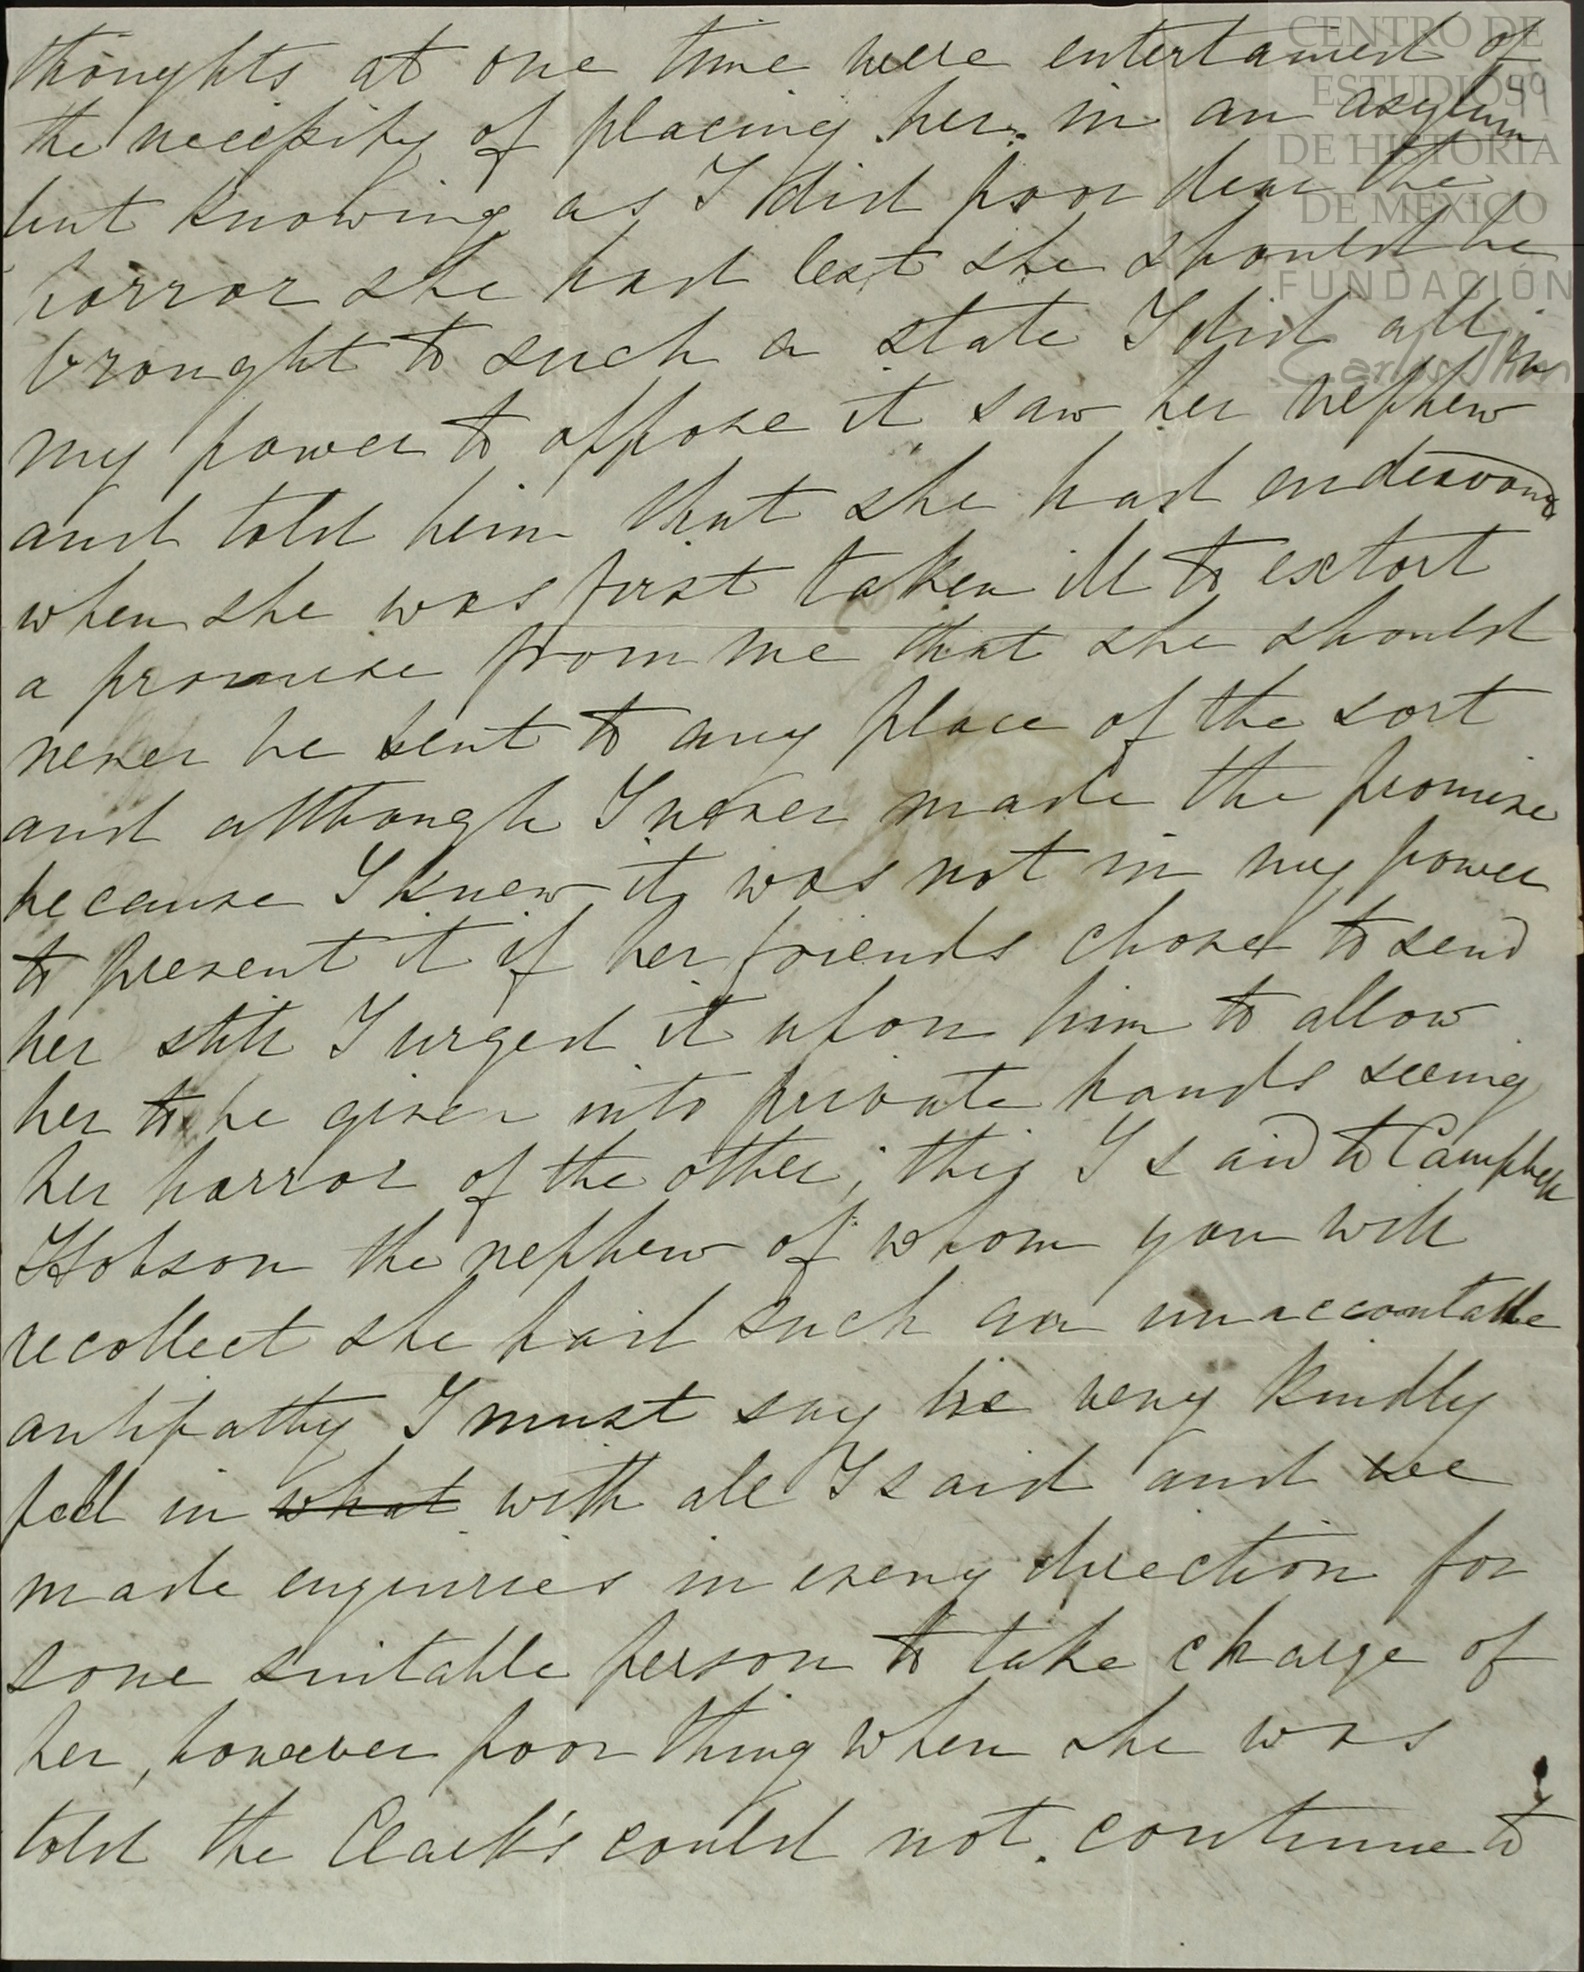 CENTRO DE
ESTUDIOS
DE HISTORIA
DE MÉXICO
FUNDACIÓN
Carlos Slim
99
thoughts at one time were entertained of
the necessity of placing her in an asylum
but knowing as I did poor dear the
horror she had lest she should be
brought to such a state I did all in
my power to oppose it saw her nephew
and told him that she had endeavoured
when she was first taken ill to extort
a promise from me that she should
never be sent to any place of the sort
and although I never made the promise
because I knew it was not in my power
to prevent it if her friends chose to send
her still I urged it upon him to allow
her to be given into private hands seeing
her horror of the other; this I said to Campbell
Hobson the nephew of whom you will
recollect she had such an unaccountable
antipathy I must say he very kindly
fell in what with all I said and we
made enquiries in every direction for
some suitable person to take charge of
her, however poor thing when she was
told the Clark's could not continue to